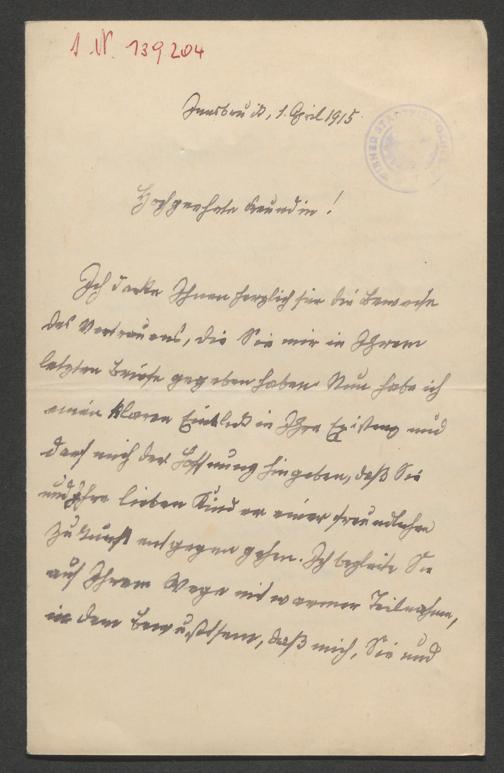 I. N. 139204
Innsbruck, 1. April 1915.
WIENER STADTBIBLIOTHEK
Hochgeehrte Freundin!
Ich danke Ihnen herzlich für die Beweise
des Vertrauens, die Sie mir in Ihrem
letzten Briefe gegeben haben. Nun habe ich
einen klaren Einblick in Ihre Existenz und
darf mich der Hoffnung hingeben, daß Sie
und Ihre lieben Kinder einer freundlichen
Zukunft entgegen gehen. Ich begleite Sie
auf Ihrem Wege mit warmer Teilnahme,
in dem Bewußtsein, daß mich, Sie und